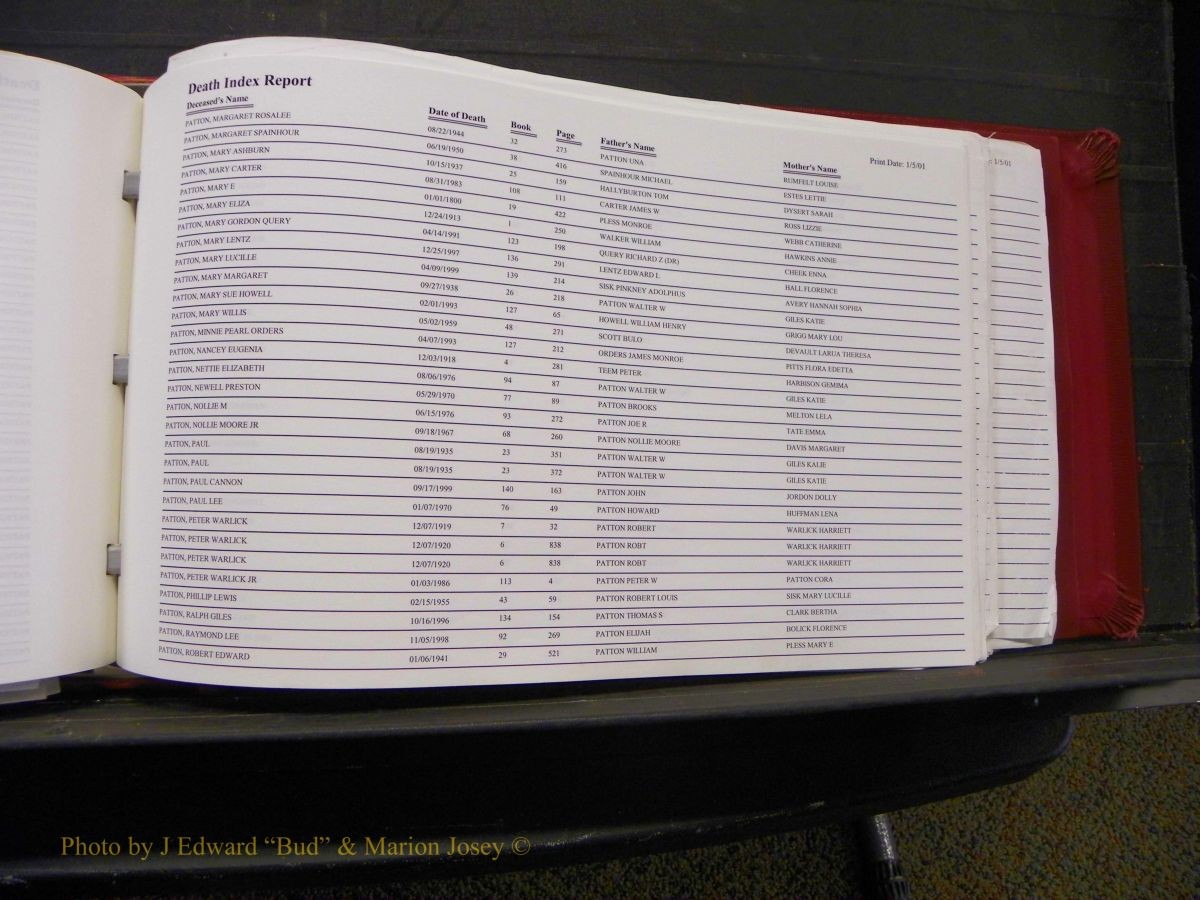 Death Index Report
Print Date: 1/5/01
: 1/5/01
Deceased's Name Date of Death Book Page Father's Name Mother's Name
PATTON, MARGARET ROSALEE 08/22/1944 32 273 PATTON UNA RUMFELT LOUISE
PATTON, MARGARET SPAINHOUR 06/19/1950 38 416 SPAINHOUR MICHAEL ESTES LETTIE
PATTON, MARY ASHBURN 10/15/1937 25 159 HALLYBURTON TOM DYSERT SARAH
PATTON, MARY CARTER 08/31/1983 108 111 CARTER JAMES W ROSS LIZZIE
PATTON, MARY E 01/01/1800 19 422 PLESS MONROE WEBB CATHERINE
PATTON, MARY ELIZA 12/24/1913 1 250 WALKER WILLIAM HAWKINS ANNIE
PATTON, MARY GORDON QUERY 04/14/1991 123 198 QUERY RICHARD Z (DR) CHEEK ENNA
PATTON, MARY LENTZ 12/25/1997 136 291 LENTZ EDWARD L HALL FLORENCE
PATTON, MARY LUCILLE 04/09/1999 139 214 SISK PINKNEY ADOLPHUS AVERY HANNAH SOPHIA
PATTON, MARY MARGARET 09/27/1938 26 218 PATTON WALTER W GILES KATIE
PATTON, MARY SUE HOWELL 02/01/1993 127 65 HOWELL WILLIAM HENRY GRIGG MARY LOU
PATTON, MARY WILLIS 05/02/1959 48 271 SCOTT BULO DEVAULT LARUA THERESA
PATTON, MINNIE PEARL ORDERS 04/07/1993 127 212 ORDERS JAMES MONROE PITTS FLORA EDETTA
PATTON, NANCEY EUGENIA 12/03/1918 4 281 TEEM PETER HARBISON GEMIMA
PATTON, NETTIE ELIZABETH 08/06/1976 94 87 PATTON WALTER W GILES KATIE
PATTON, NEWELL PRESTON 05/29/1970 77 89 PATTON BROOKS MELTON LELA
PATTON, NOLLIE M 06/15/1976 93 272 PATTON JOE R TATE EMMA
PATTON, NOLLIE MOORE JR 09/18/1967 68 260 PATTON NOLLIE MOORE DAVIS MARGARET
PATTON, PAUL 08/19/1935 23 351 PATTON WALTER W GILES KALIE
PATTON, PAUL 08/19/1935 23 372 PATTON WALTER W GILES KATIE
PATTON, PAUL CANNON 09/17/1999 140 163 PATTON JOHN JORDON DOLLY
PATTON, PAUL LEE 01/07/1970 76 49 PATTON HOWARD HUFFMAN LENA
PATTON, PETER WARLICK 12/07/1919 7 32 PATTON ROBERT WARLICK HARRIETT
PATTON, PETER WARLICK 12/07/1920 6 838 PATTON ROBT WARLICK HARRIETT
PATTON, PETER WARLICK 12/07/1920 6 838 PATTON ROBT WARLICK HARRIETT
PATTON, PETER WARLICK JR 01/03/1986 113 4 PATTON PETER W PATTON CORA
PATTON, PHILLIP LEWIS 02/15/1955 43 59 PATTON ROBERT LOUIS SISK MARY LUCILLE
PATTON, RALPH GILES 10/16/1996 134 154 PATTON THOMAS S CLARK BERTHA
PATTON, RAYMOND LEE 11/05/1998 92 269 PATTON ELIJAH BOLICK FLORENCE
PATTON, ROBERT EDWARD 01/06/1941 29 521 PATTON WILLIAM PLESS MARY E
Photo by J Edward “Bud” & Marion Josey ©